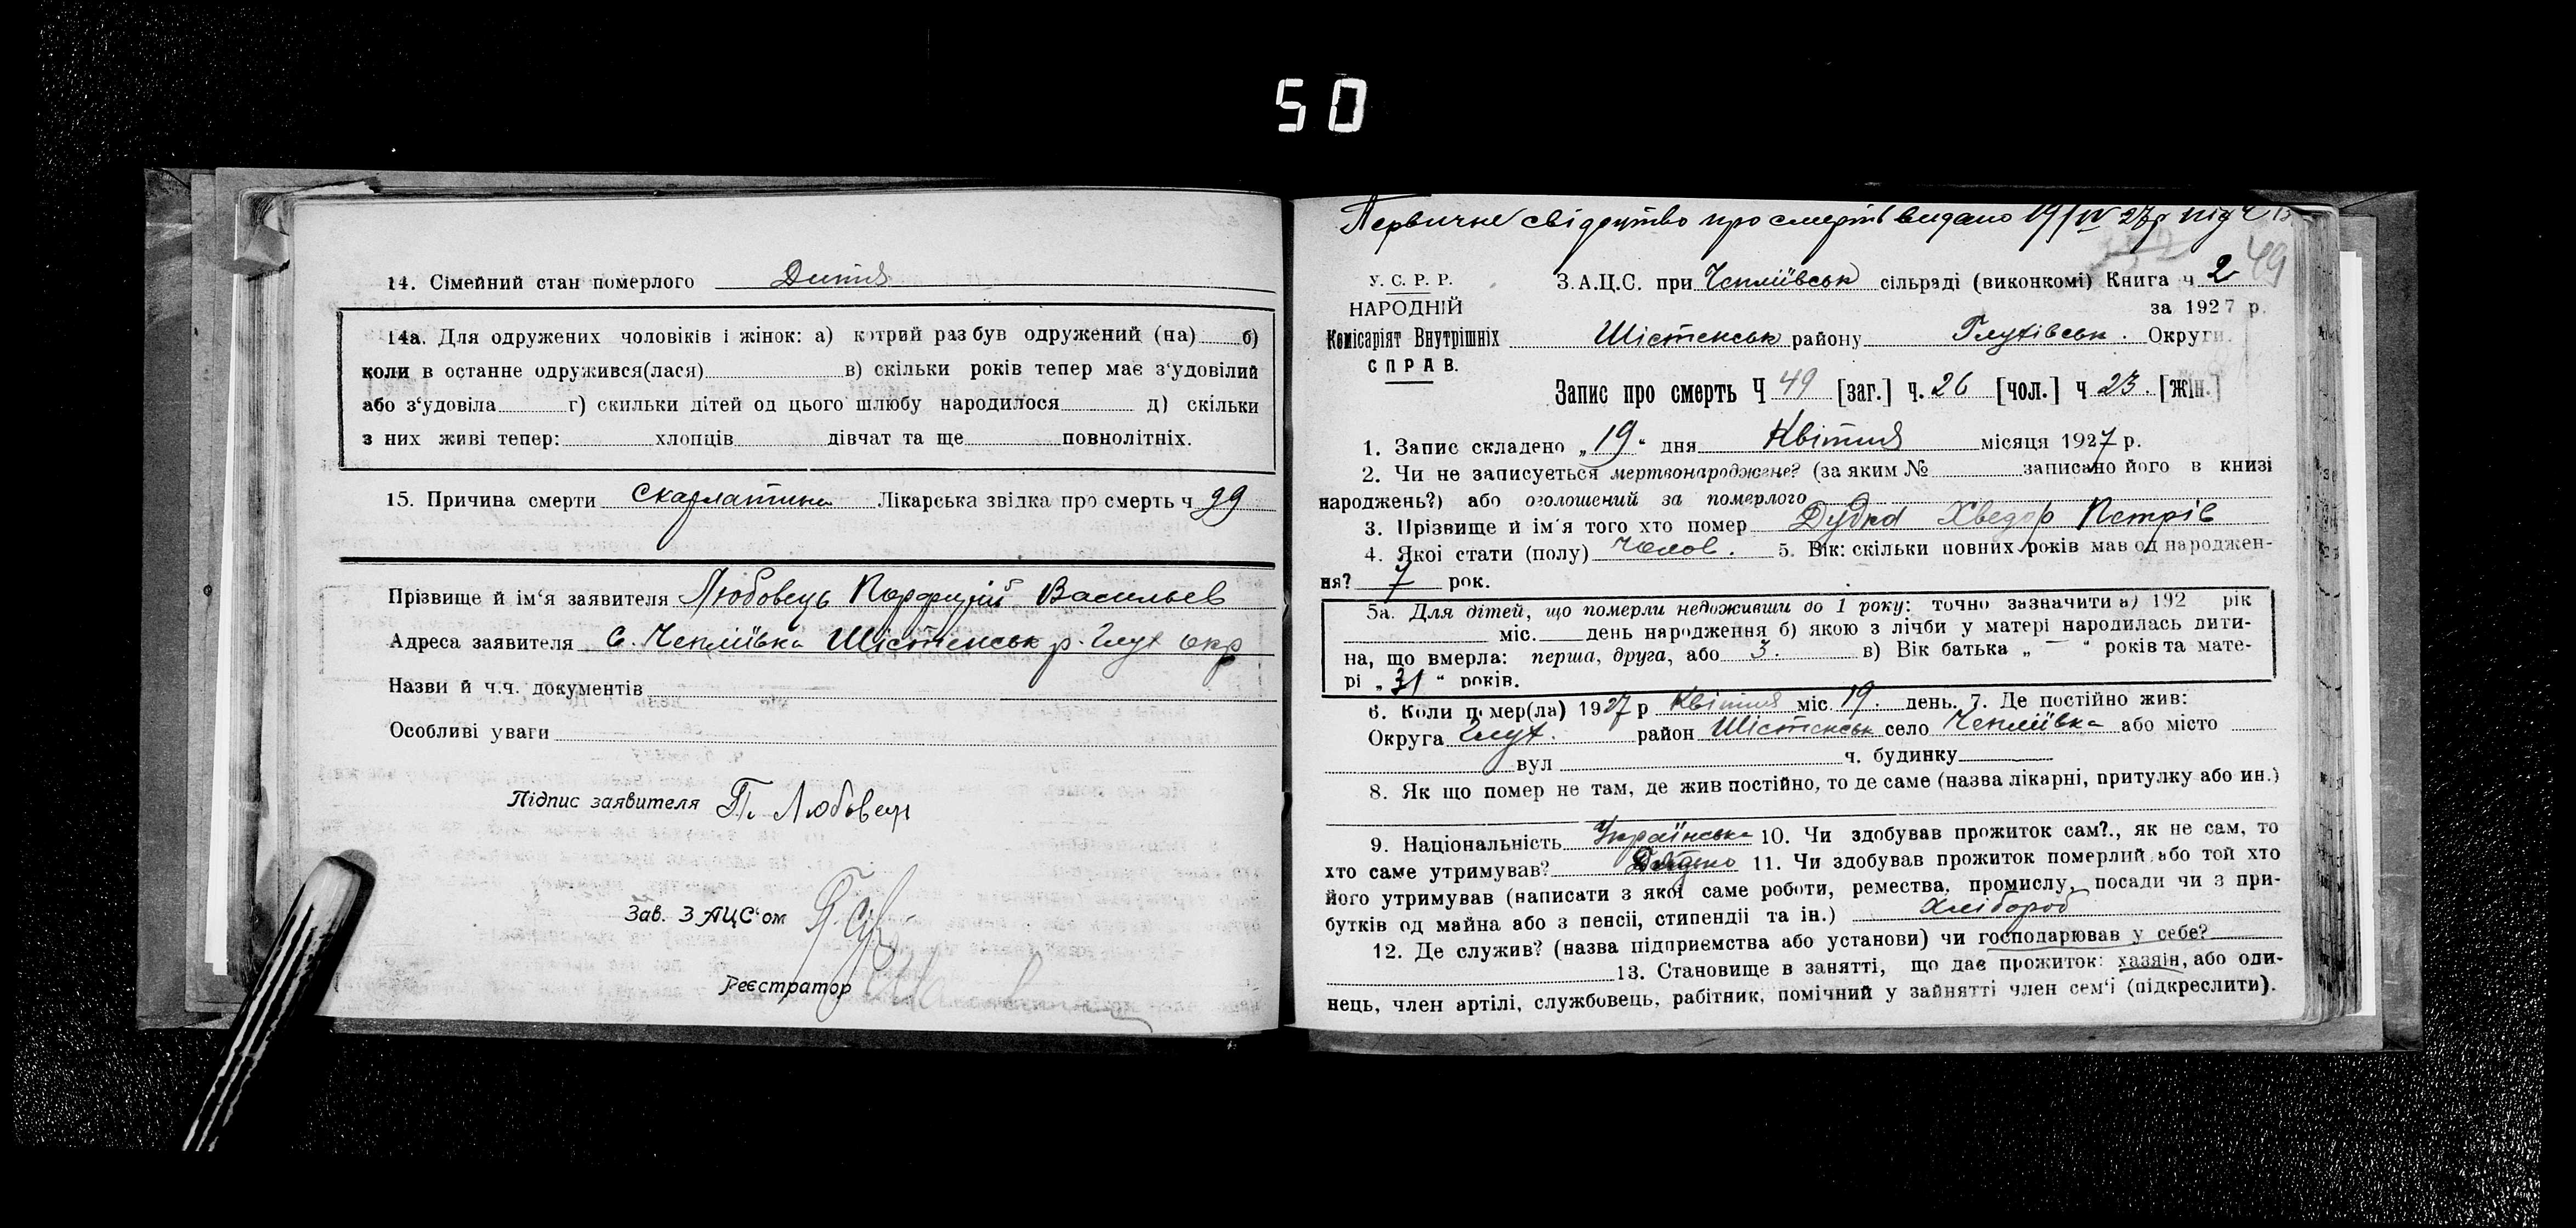 50
14. Сімейний стан померлого Дитя
14а. Для одружених чоловіків і жінок: а) котрий раз був одружений (на) б)
коли в останне одружився(лася) в) скільки років тепер має з'удовілий
або з'удовіла г) скильки дітей од цього шлюбу народилося д) скільки
з них живі тепер: хлопців дівчат та ще повнолітніх.
15. Причина смерти Скарлатина Лікарська звідка про смерть ч 99
Прізвище й ім'я заявителя Любовець Порфирій Васильев
Адреса заявителя С. Чепліївка Шістенськ р. Глух окр
Назви й ч.ч. документів
Особливі уваги
Підпис заявителя П. Любовец
Зав. З АЦС'ом
Реєстратор
Первичне свідоцтво про смерть видано 19/IV 27р під ч
У. С. Р. Р. З.А.Ц.С. при Чепліївськ сільраді (виконкомі) Книга ч 2 49
НАРОДНІЙ за 1927 р.
Комісаріят Внутрішніх Шістенськ району Глухівськ. Округи.
СПРАВ.
Запис про смерть Ч 49 [заг.] ч. 26 [чол.] ч 23. [жін.]
1. Запис складено „19" дня Квітня місяця 1927 р.
2. Чи не записуеться мертвонароджене? (за яким № записано його в книзі
народжень?) або оголошений за померлого
3. Прізвище й ім'я того хто помер Дудка Хведор Петрів
4. Якоі стати (полу) Чолов. 5. Вік: скільки повних років мав од народжен-
ня? 7 рок.
5а. Для дітей, що померли недоживши до 1 року: точно зазначити а) 192 рік
міс. день народження б) якою з лічби у матері народилась дити-
на, що вмерла: перша, друга, або 3. в) Вік батька „ — " років та мате-
рі „31" років.
6. Коли помер(ла) 1927 р Квітня міс 19. день. 7. Де постійно жив:
Округа Глух. район Шістенськ село Чепліївка або місто
вул ч. будинку
8. Як що помер не там, де жив постійно, то де саме (назва лікарні, притулку або ин.)
9. Національність Українська 10. Чи здобував прожиток сам?., як не сам, то
хто саме утримував? 11. Чи здобував прожиток померлий або той хто
його утримував (написати з якої саме роботи, ремества, промислу, посади чи з при-
бутків од майна або з пенсіі, стипендіі та ін.) Хлібороб
12. Де служив? (назва підприємства або установи) чи господарював у себе?
13. Становище в занятті, що дає прожиток: хазяін, або оди-
нець, член артілі, службовець, рабітник, помічний у зайнятті член сем'і (підкреслити).